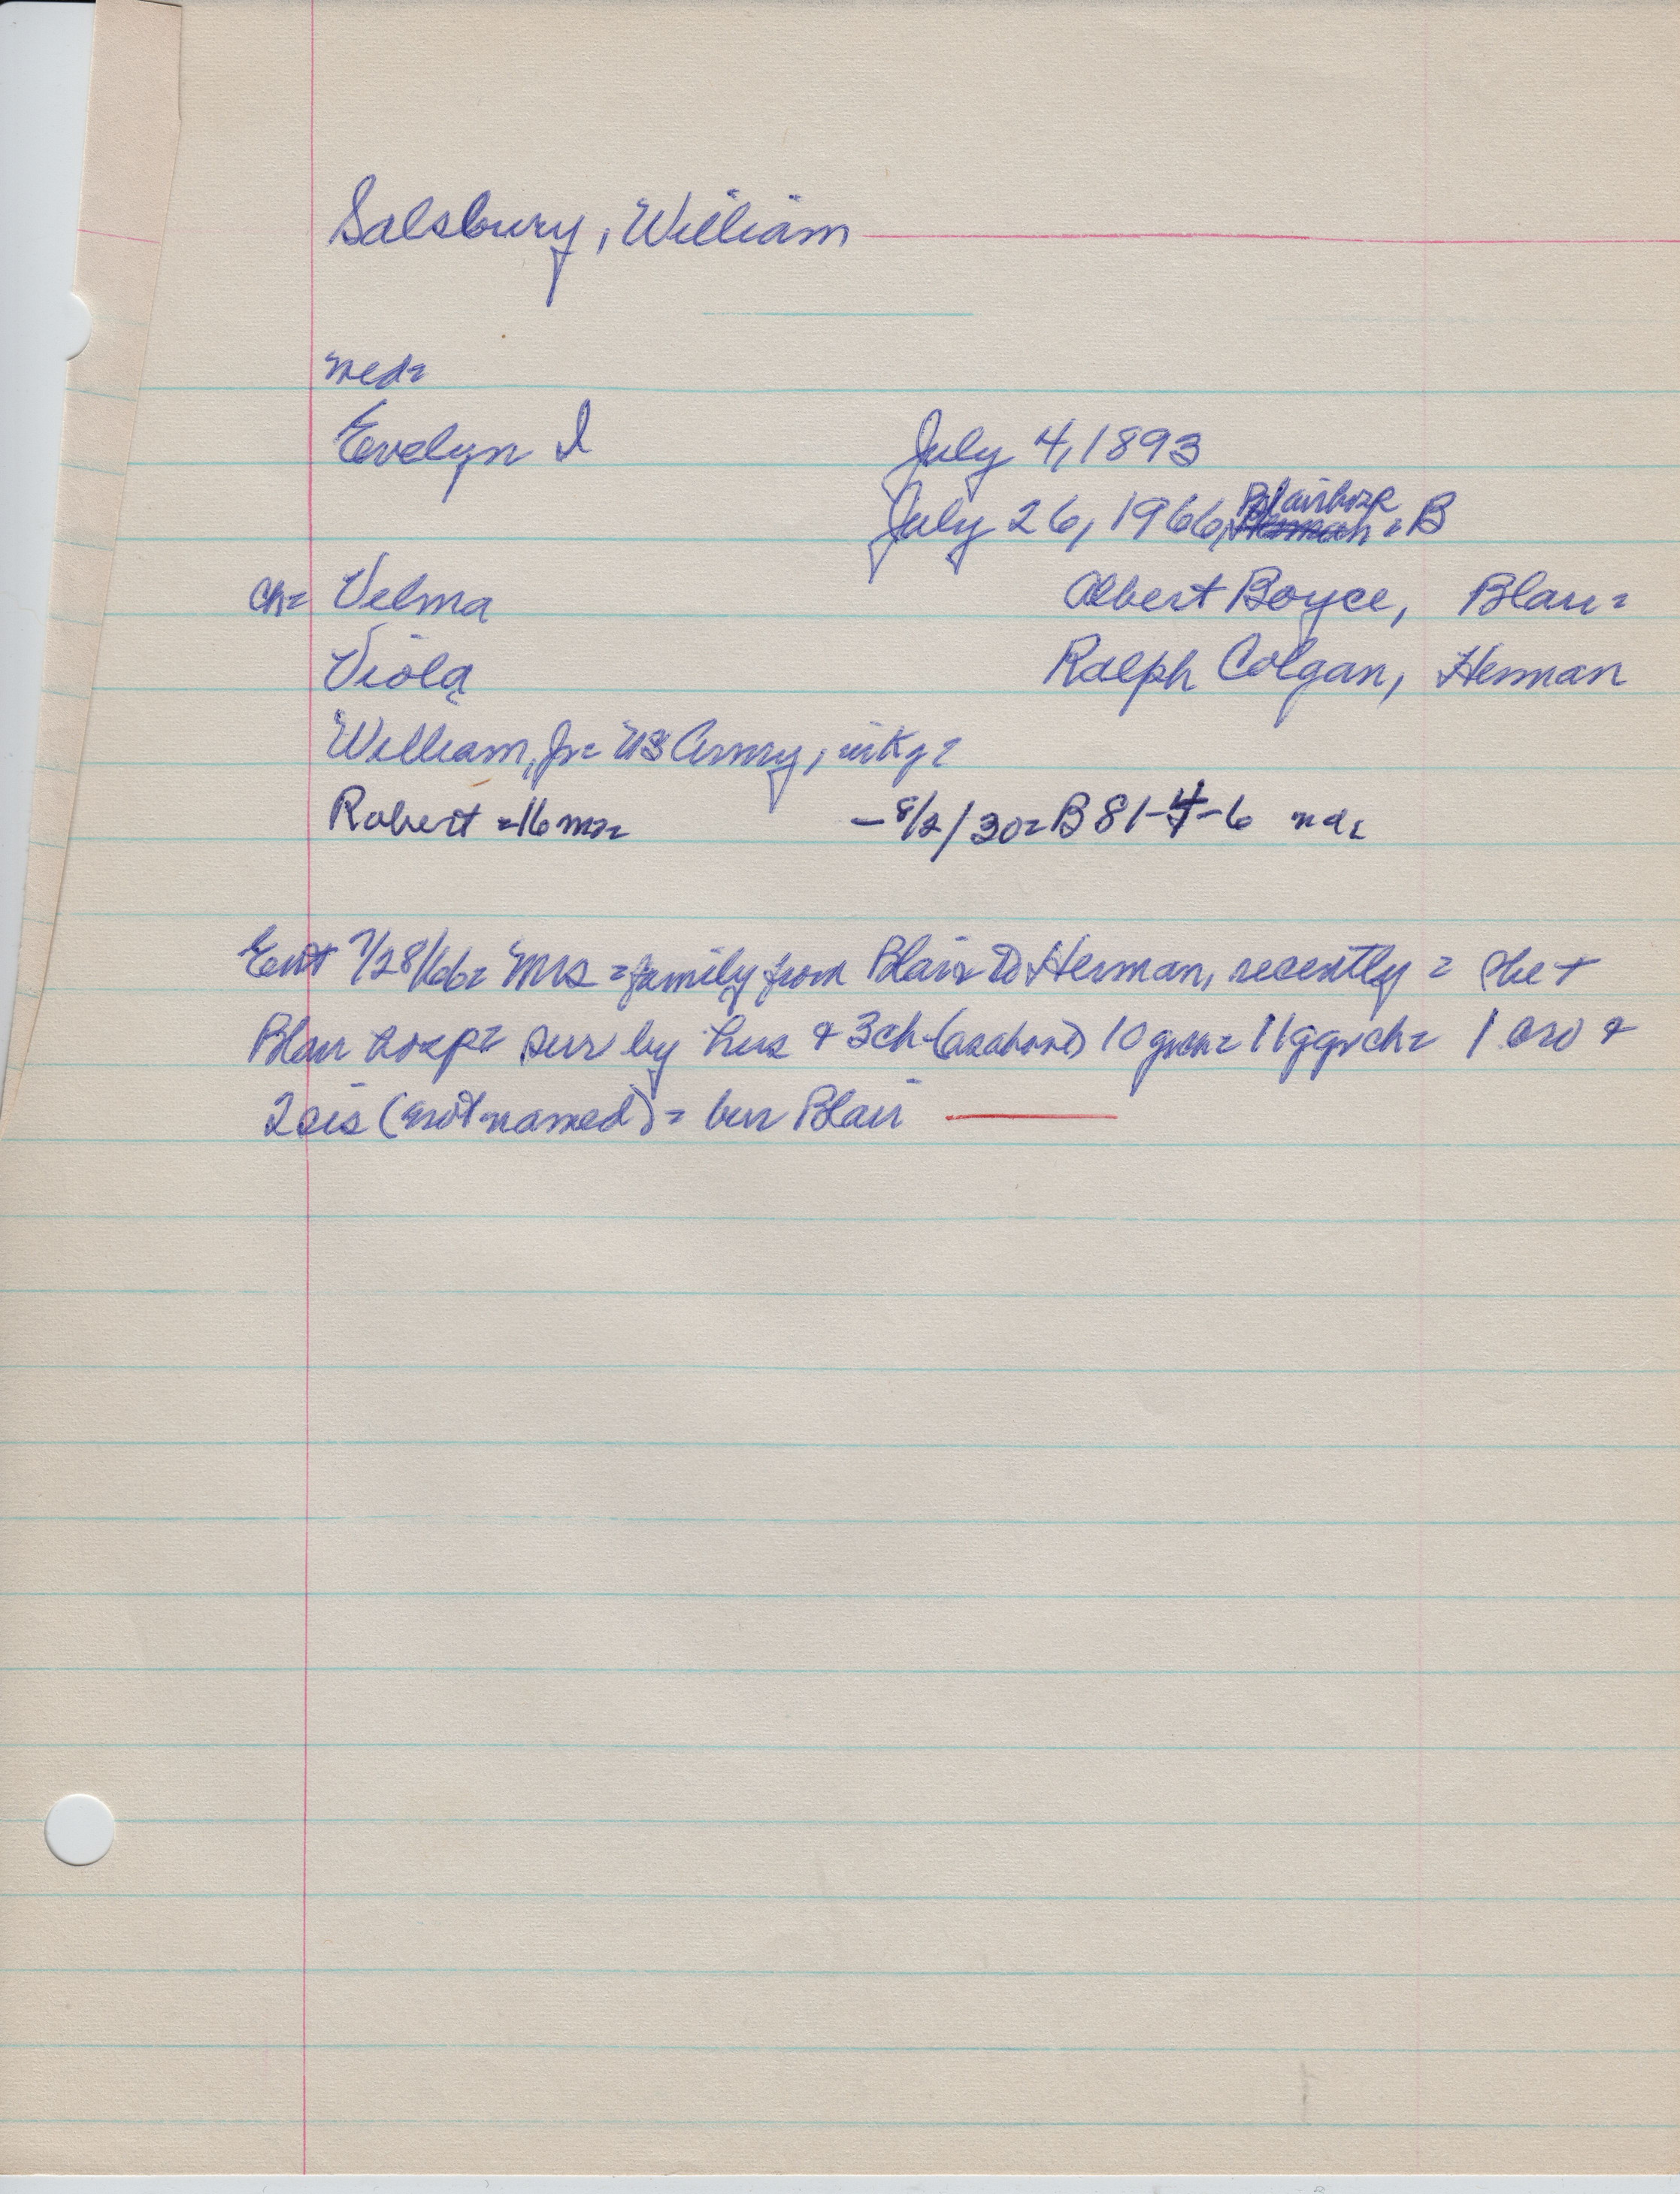 Salsbury, William
Evelyn I July 4, 1893
Blair hosp
July 26, 1966, Herman = B
ch= Velma Albert Boyce, Blair=
Viola Ralph Colgan, Herman
William, Jr= US Army, in Ky=
Robert =16 mo= - 8/2/30= B 81-4-6
7/28/66= Mrs = family from Blair to Herman, recently = she +
Blair hosp= sur by hus & 3 ch (as above) 10 grch= 11 ggrch= 1 bro &
2 sis (not named)= bur Blair